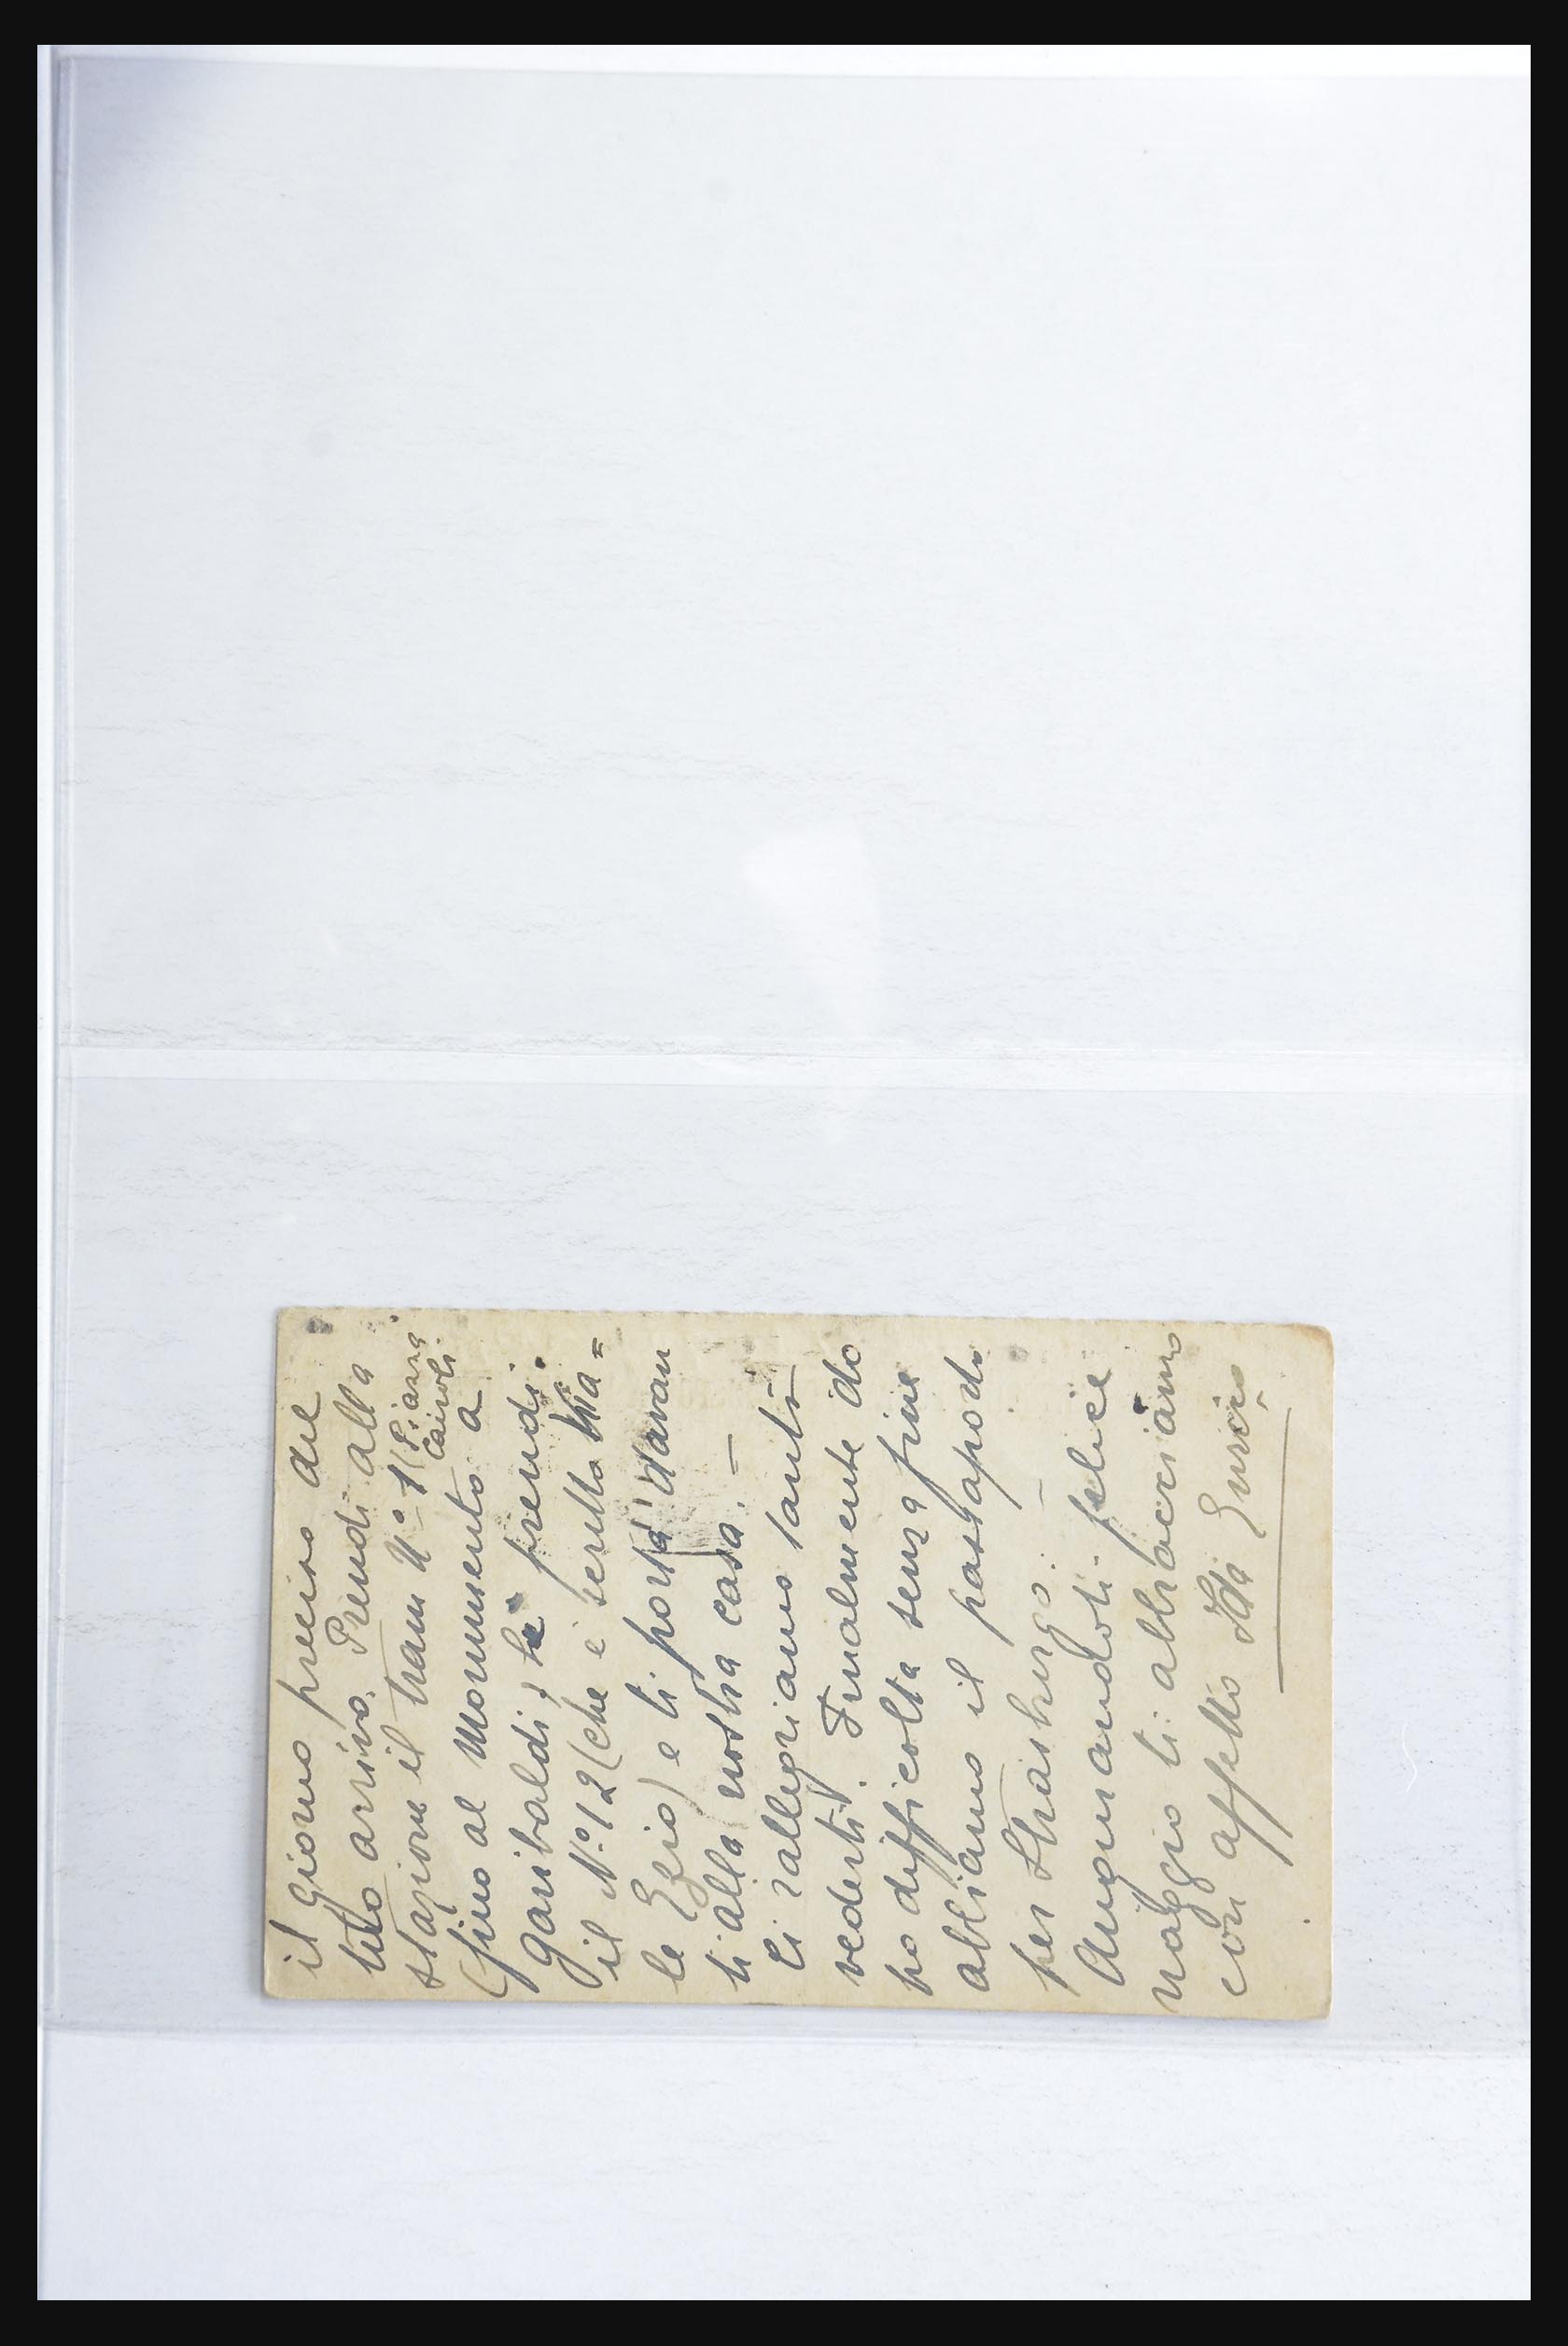 il giorno preciso del
tuo arrivo. Prendi alla
stazione il tram No 1 (Piazza
Cairoli
(fino al Monumento a
Garibaldi) prendi
il No 12 (che è scritto Via=
le Ezio) e ti porta davan
ti alla nostra casa. —
Ci rallegriamo tanto
vederti. Finalmente do
po difficoltà senza fine
abbiamo il passapodo
per Strasburgo. —
Augurandoti felice
viaggio ti abbracciamo
con affetto Ida